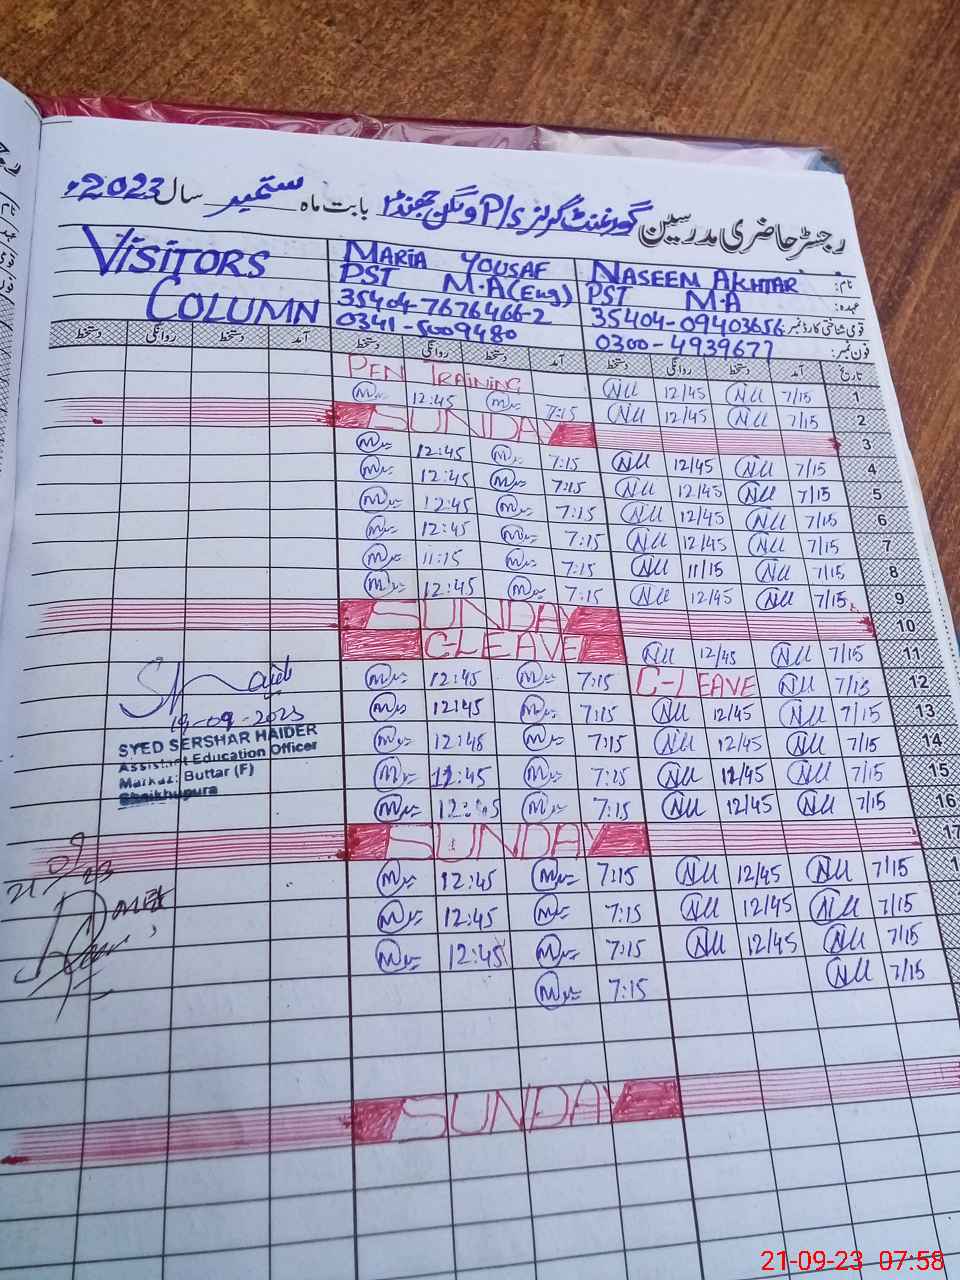 رجسٹر حاضری مدرسین گورنمنٹ گرلز P/S بابت ماہ ستمبر سال 2023ء
VISITORS COLUMN
MARIA YOUSAF
PST M.A(Eng)
35404-7676466-2
0341-5009480
نام: NASEEM AKHTAR
عہدہ: PST M.A
قومی شناختی کارڈ نمبر: 35404-0940365
فون نمبر: 0300-4939677
تاریخ آمد دستخط روانگی دستخط آمد دستخط روانگی دستخط آمد دستخط روانگی دستخط
PEN TRAINING Nu 12/45 Nu 7/15 1
12:45 7:15 Nu 12/45 Nu 7/15 2
SUNDAY 3
12:45 7:15 Nu 12/45 Nu 7/15 4
12:45 7:15 Nu 12/45 Nu 7/15 5
12:45 7:15 Nu 12/45 Nu 7/15 6
12:45 7:15 Nu 12/45 Nu 7/15 7
11:15 7:15 Nu 11/15 Nu 7/15 8
12:45 7:15 Nu 12/45 Nu 7/15 9
SUNDAY 10
C-LEAVE Nu 12/45 Nu 7/15 11
12:45 7:15 C-LEAVE Nu 7/15 12
12:45 7:15 Nu 12/45 Nu 7/15 13
12:45 7:15 Nu 12/45 Nu 7/15 14
12:45 7:15 Nu 12/45 Nu 7/15 15
12:45 7:15 Nu 12/45 Nu 7/15 16
SUNDAY 17
12:45 7:15 Nu 12/45 Nu 7/15
12:45 7:15 Nu 12/45 Nu 7/15
12:45 7:15 Nu 12/45 Nu 7/15
7:15 Nu 7/15
SUNDAY
-09-2023
SYED SERSHAR HAIDER
Assistant Education Officer
Markaz: Buttar (F)
Sheikhupura
21/09/23
21-09-23 07:58